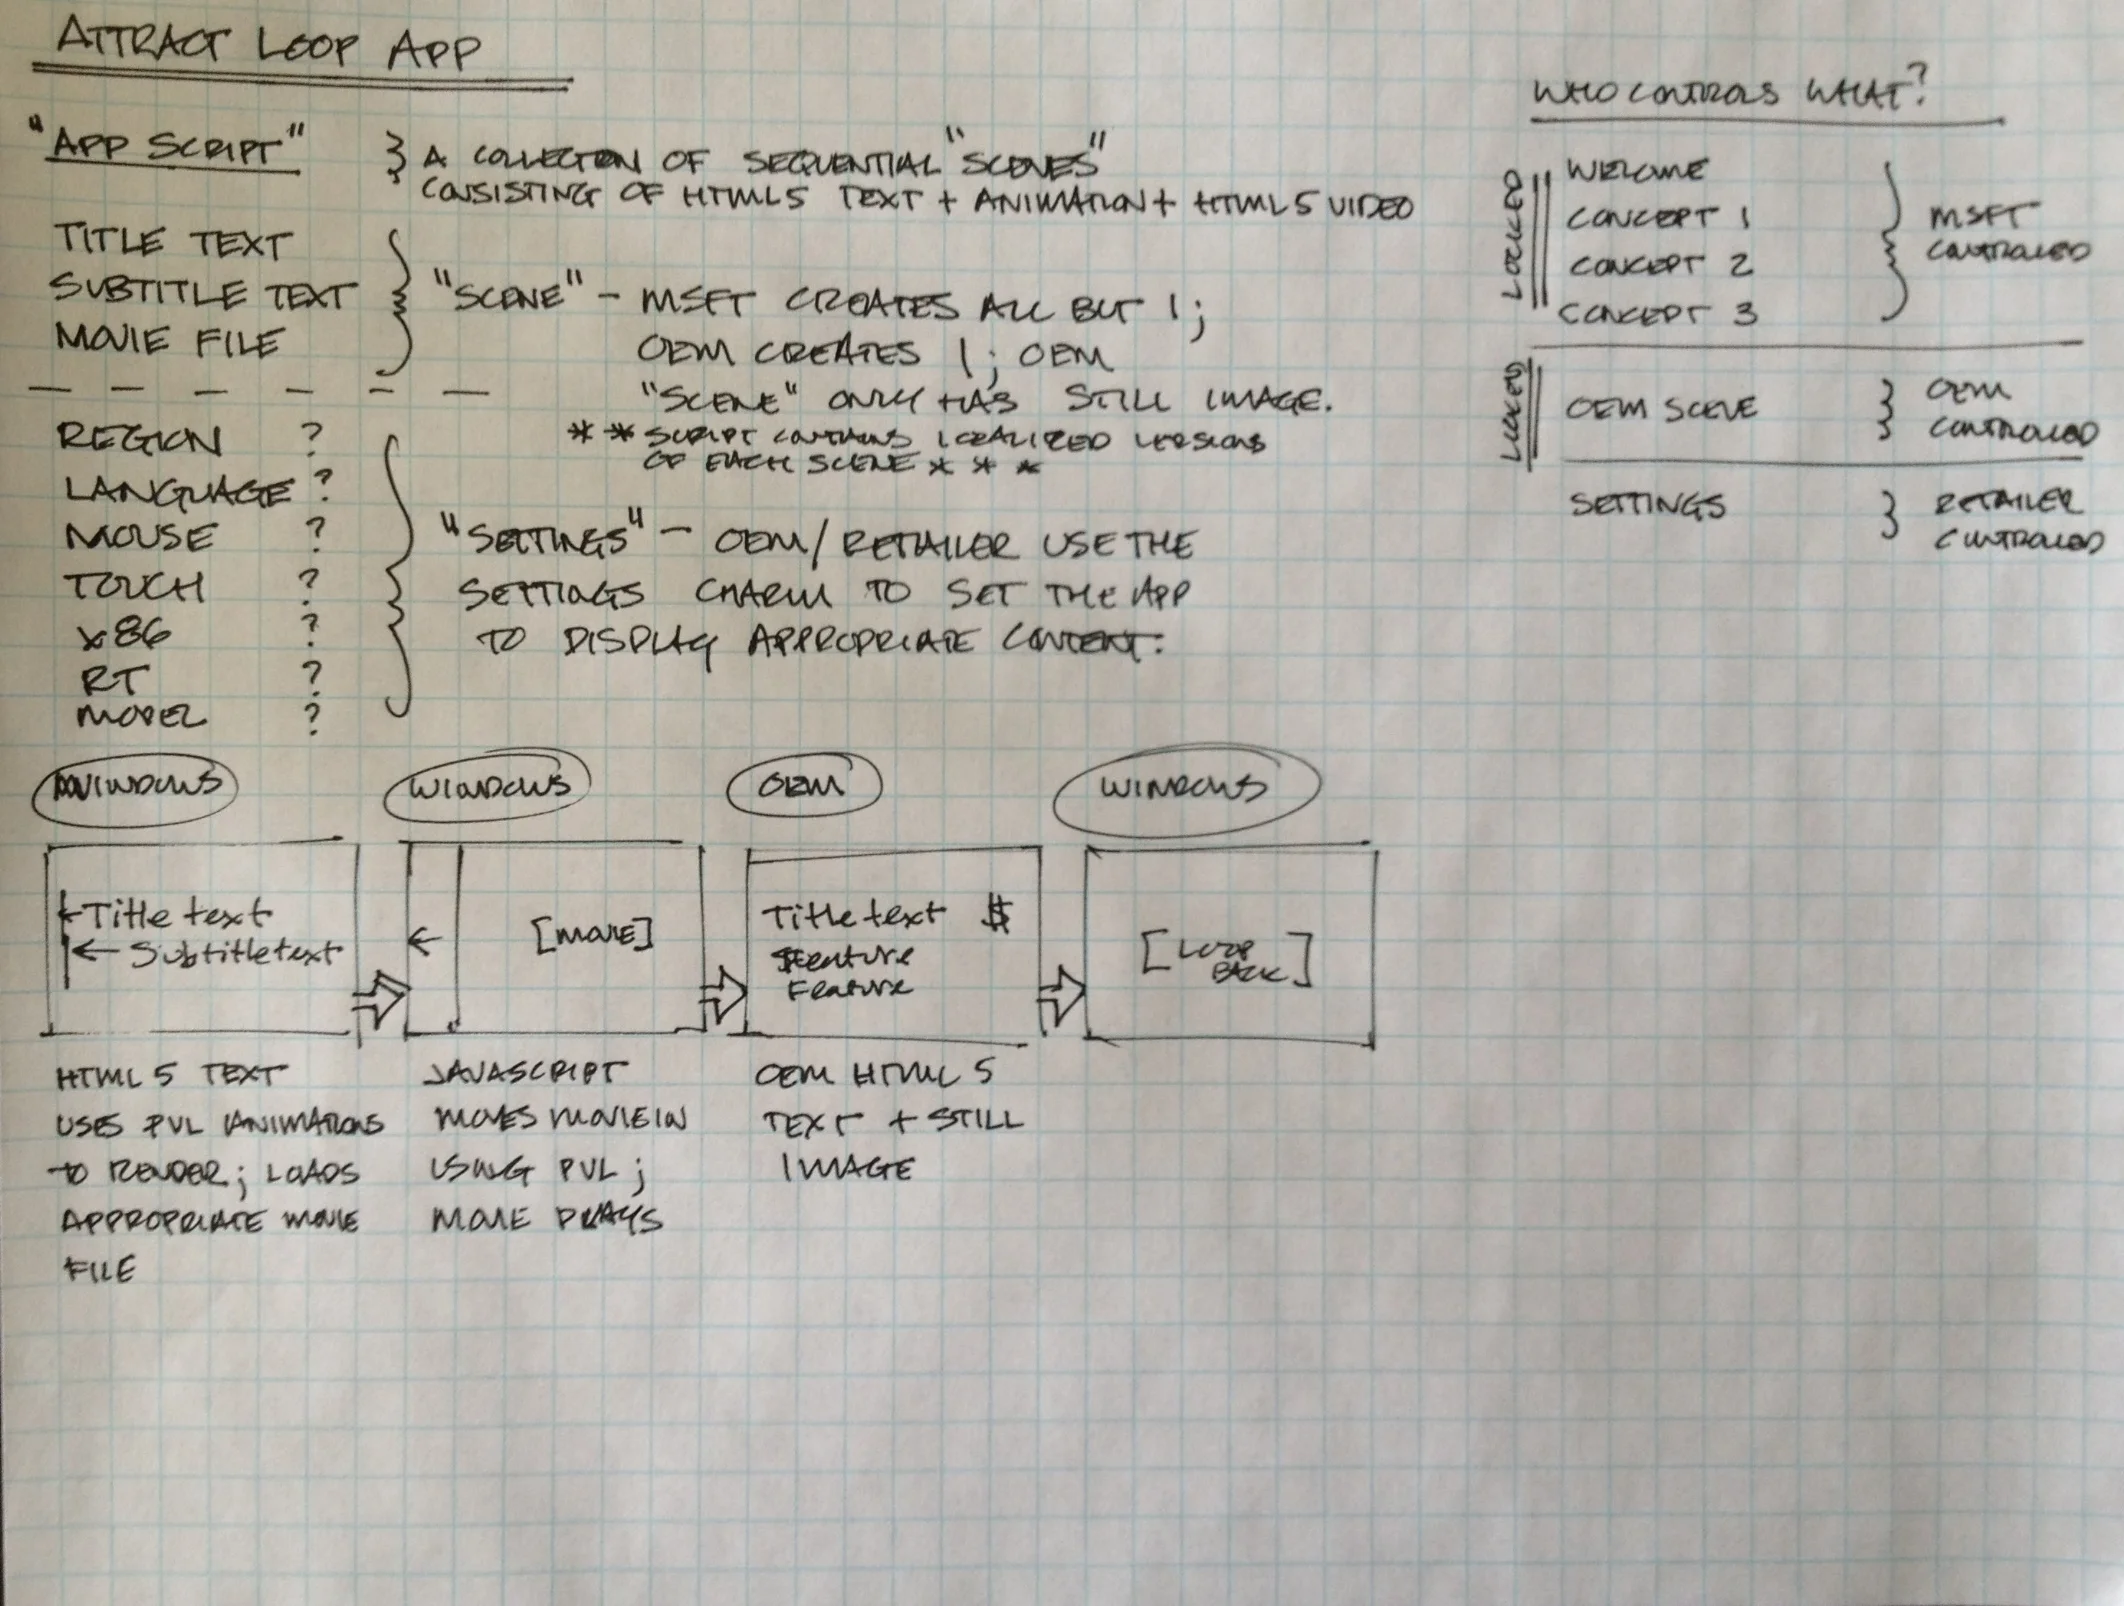 ATTRACT LOOP APP
"APP SCRIPT"
A COLLECTION OF SEQUENTIAL "SCENES"
CONSISTING OF HTML5 TEXT + ANIMATION + HTML5 VIDEO
TITLE TEXT
SUBTITLE TEXT
MOVIE FILE
"SCENE" - MSFT CREATES ALL BUT 1;
OEM CREATES 1; OEM
"SCENE" ONLY HAS STILL IMAGE.
** SCRIPT CONTAINS LOCALIZED VERSIONS
OF EACH SCENE * * *
REGION ?
LANGUAGE ?
MOUSE ?
TOUCH ?
x86 ?
RT ?
MODEL ?
"SETTINGS" - OEM/RETAILER USE THE
SETTINGS CHARM TO SET THE APP
TO DISPLAY APPROPRIATE CONTENT.
WHO CONTROLS WHAT?
LOCKED
WELCOME
CONCEPT 1
CONCEPT 2
CONCEPT 3
MSFT
CONTROLED
LOCKED
OEM SCENE
OEM
CONTROLED
SETTINGS
RETAILER
CONTROLED
WINDOWS
WINDOWS
OEM
WINDOWS
Title text
Subtitle text
[MOVIE]
Title text $
Feature
Feature
[LOOP
BACK]
HTML5 TEXT
USES PVL ANIMATIONS
TO RENDER; LOADS
APPROPRIATE MOVIE
FILE
JAVASCRIPT
MOVES MOVIE IN
USING PVL;
MOVIE PLAYS
OEM HTML5
TEXT + STILL
IMAGE